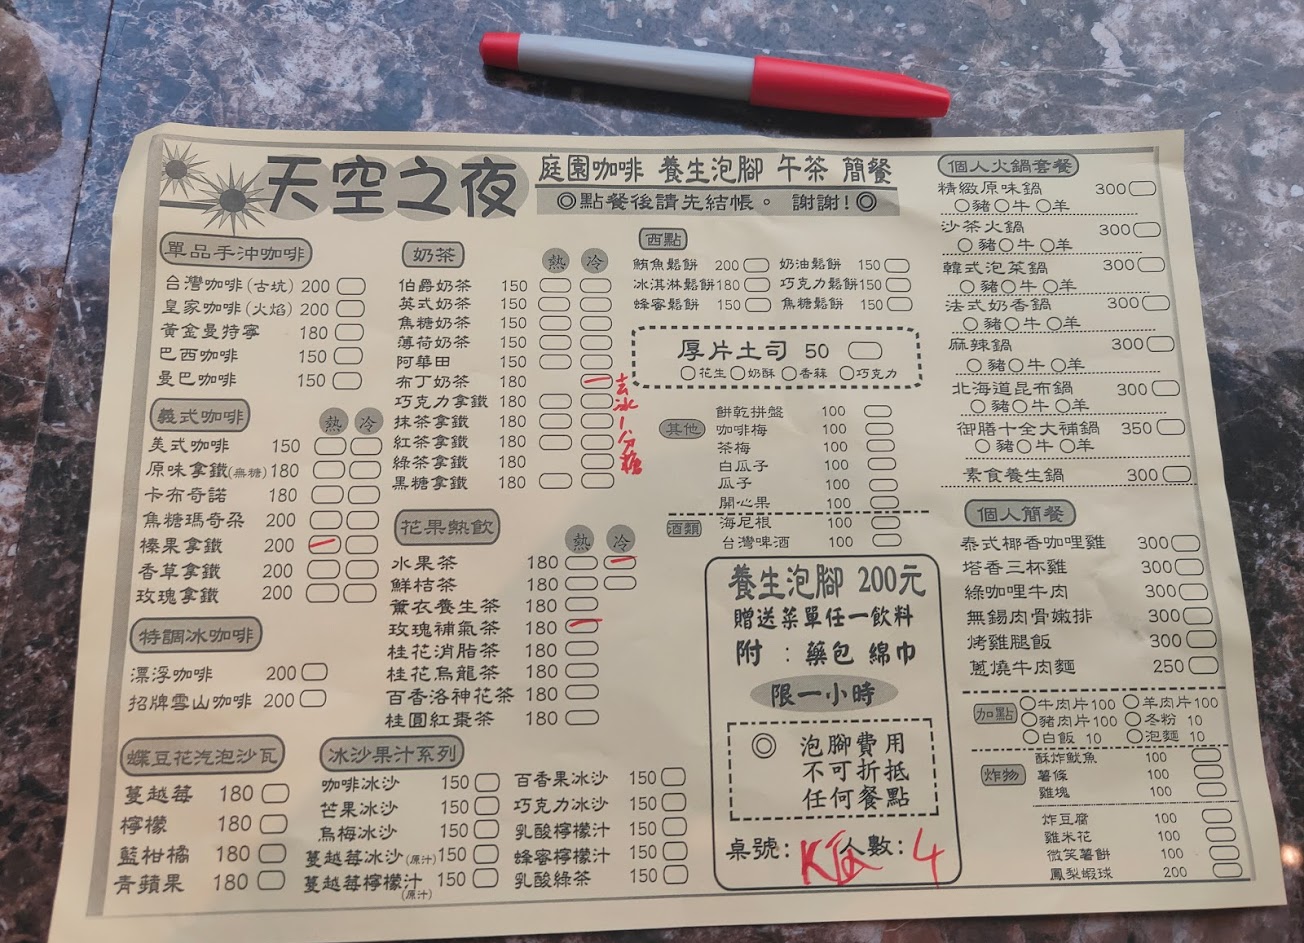 天空之夜
庭園咖啡 養生泡腳 午茶 簡餐
◎點餐後請先結帳。 謝謝!◎
單品手沖咖啡
台灣咖啡(古坑) 200
皇家咖啡(火焰) 200
黃金曼特寧 180
巴西咖啡 150
曼巴咖啡 150
義式咖啡 熱 冷
美式咖啡 150
原味拿鐵(無糖) 180
卡布奇諾 180
焦糖瑪奇朵 200
榛果拿鐵 200
香草拿鐵 200
玫瑰拿鐵 200
特調冰咖啡
漂浮咖啡 200
招牌雪山咖啡 200
蝶豆花汽泡沙瓦
蔓越莓 180
檸檬 180
藍柑橘 180
青蘋果 180
奶茶 熱 冷
伯爵奶茶 150
英式奶茶 150
焦糖奶茶 150
薄荷奶茶 150
阿華田 150
布丁奶茶 180
巧克力拿鐵 180
抹茶拿鐵 180
紅茶拿鐵 180
綠茶拿鐵 180
黑糖拿鐵 180
去冰1分糖
花果熱飲 熱 冷
水果茶 180
鮮桔茶 180
薰衣養生茶 180
玫瑰補氣茶 180
桂花消脂茶 180
桂花烏龍茶 180
百香洛神花茶 180
桂圓紅棗茶 180
冰沙果汁系列
咖啡冰沙 150
芒果冰沙 150
烏梅冰沙 150
蔓越莓冰沙(原汁) 150
蔓越莓檸檬汁 150
(原汁)
百香果冰沙 150
巧克力冰沙 150
乳酸檸檬汁 150
蜂蜜檸檬汁 150
乳酸綠茶 150
西點
鮪魚鬆餅 200 奶油鬆餅 150
冰淇淋鬆餅 180 巧克力鬆餅 150
蜂蜜鬆餅 150 焦糖鬆餅 150
厚片土司 50
○花生 ○奶酥 ○香蒜 ○巧克力
其他
餅乾拼盤 100
咖啡梅 100
茶梅 100
白瓜子 100
瓜子 100
開心果 100
酒類
海尼根 100
台灣啤酒 100
養生泡腳 200元
贈送菜單任一飲料
附 : 藥包 綿巾
限一小時
◎ 泡腳費用
不可折抵
任何餐點
桌號: 人數: 4
個人火鍋套餐
精緻原味鍋 300
○豬○牛 ○羊
沙茶火鍋 300
○豬○牛 ○羊
韓式泡菜鍋 300
○豬○牛 ○羊
法式奶香鍋 300
○豬○牛 ○羊
麻辣鍋 300
○豬○牛 ○羊
北海道昆布鍋 300
○豬○牛 ○羊
御膳十全大補鍋 350
○豬○牛 ○羊
素食養生鍋 300
個人簡餐
泰式椰香咖哩雞 300
塔香三杯雞 300
綠咖哩牛肉 300
無錫肉骨嫩排 300
烤雞腿飯 300
蔥燒牛肉麵 250
加點
○牛肉片100 ○羊肉片100
○豬肉片100 ○冬粉 10
○白飯 10 ○泡麵 10
炸物
酥炸魷魚 100
薯條 100
雞塊 100
炸豆腐 100
雞米花 100
微笑薯餅 100
鳳梨蝦球 200